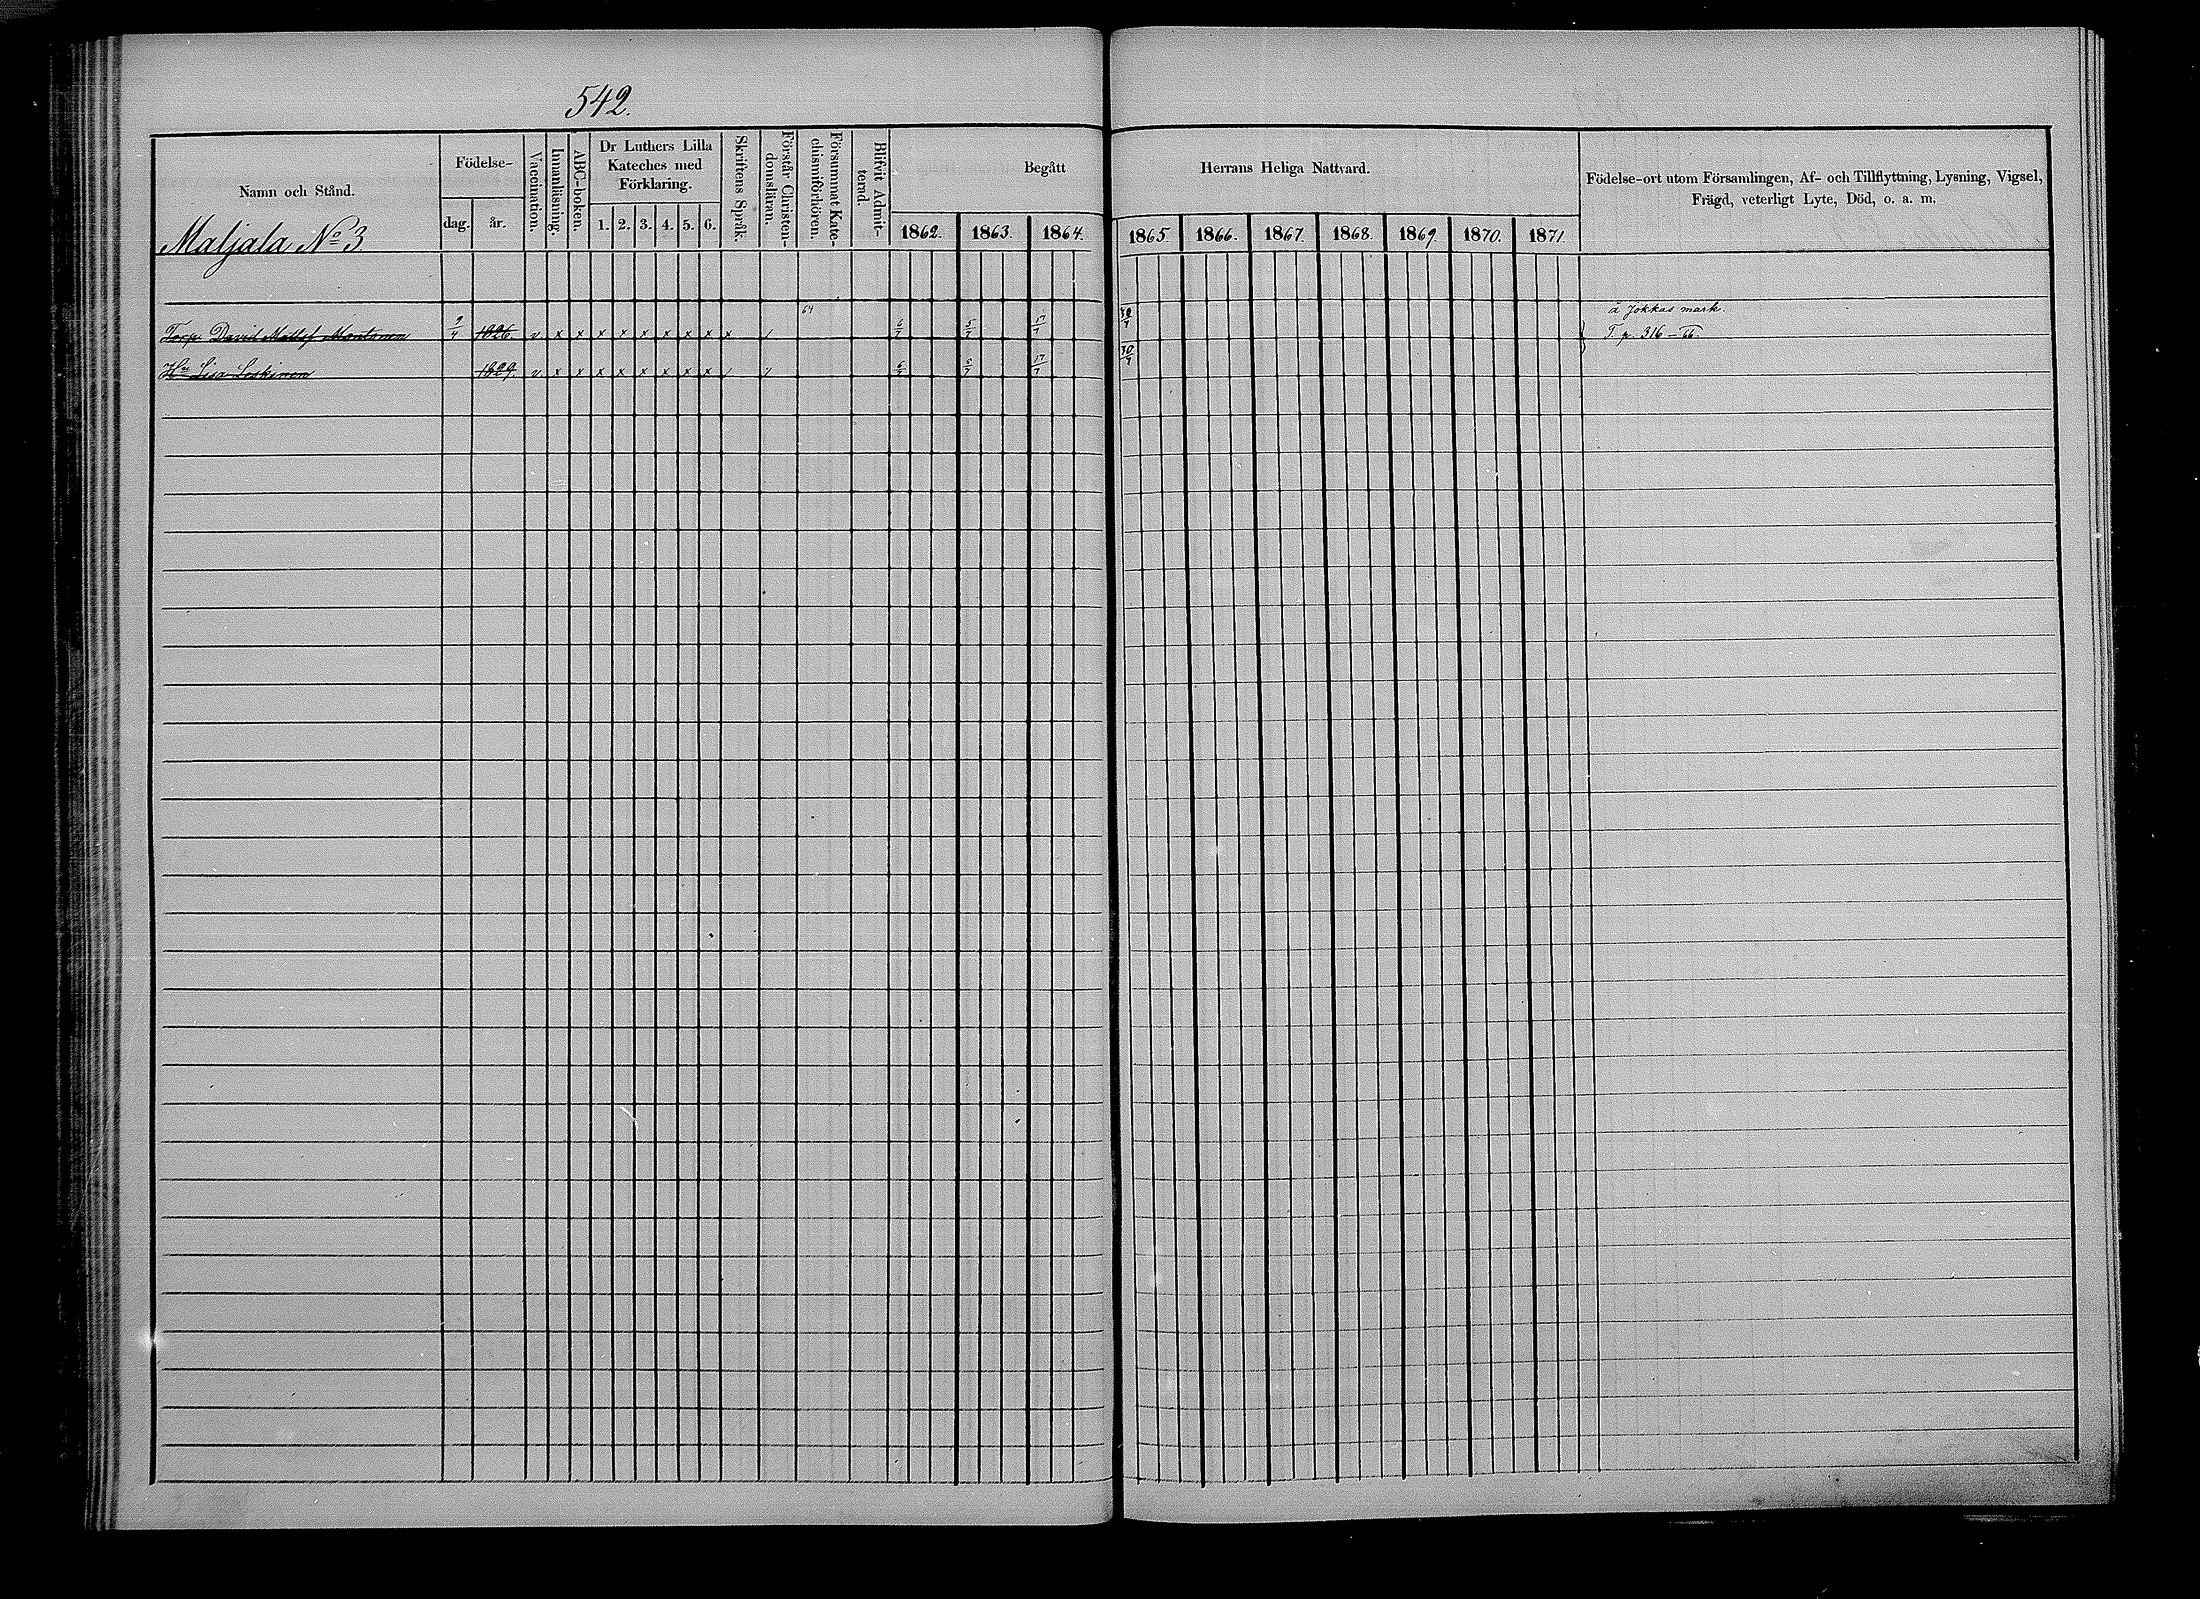 542.
Namn och Stånd.
Maljala No 3
Födelse-
dag. år.
Vaccination.
Innanläsning.
ABC-boken.
Dr Luthers Lilla
Kateches med
Förklaring.
1. 2. 3. 4. 5. 6.
Skriftens Språk.
Förstår Christen-
domsläran.
Försummat Kate-
chismiförhören.
Blifvit Admit-
terad.
Begått Herrans Heliga Nattvard.
1862. 1863. 1864. 1865. 1866. 1867. 1868. 1869. 1870. 1871.
Födelse-ort utom Församlingen, Af- och Tillflyttning, Lysning, Vigsel,
Frägd, veterligt Lyte, Död, o. a. m.
64 å Jokkas mark.
Torp David Matts 9/4 1826 v x x x x x x x x x / 6/7 5/7 17/7 30/7 T p. 316 - 66.
Hu Lisa Leskinen 1829 v x x x x x x x x / / 6/7 5/7 17/7 30/7